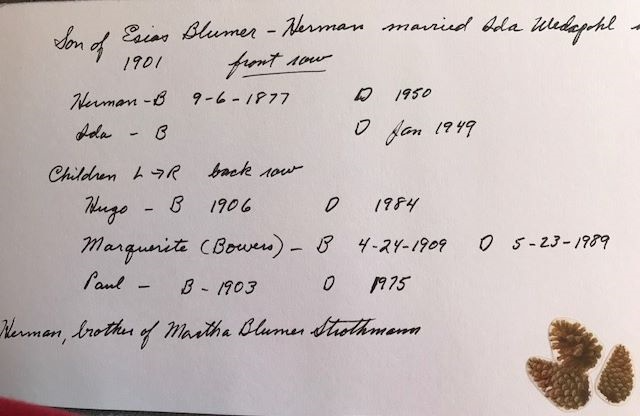 Son of Esias Blumer - Herman married Ida Wedapohl
1901 front row
Herman - B 9-6-1877 D 1950
Ida - B D Jan 1949
Children L → R back row
Hugo - B 1906 D 1984
Marguerite (Bowers) - B 4-24-1909 D 5-23-1989
Paul - B - 1903 D 1975
Herman, brother of Martha Blumer Strothmann